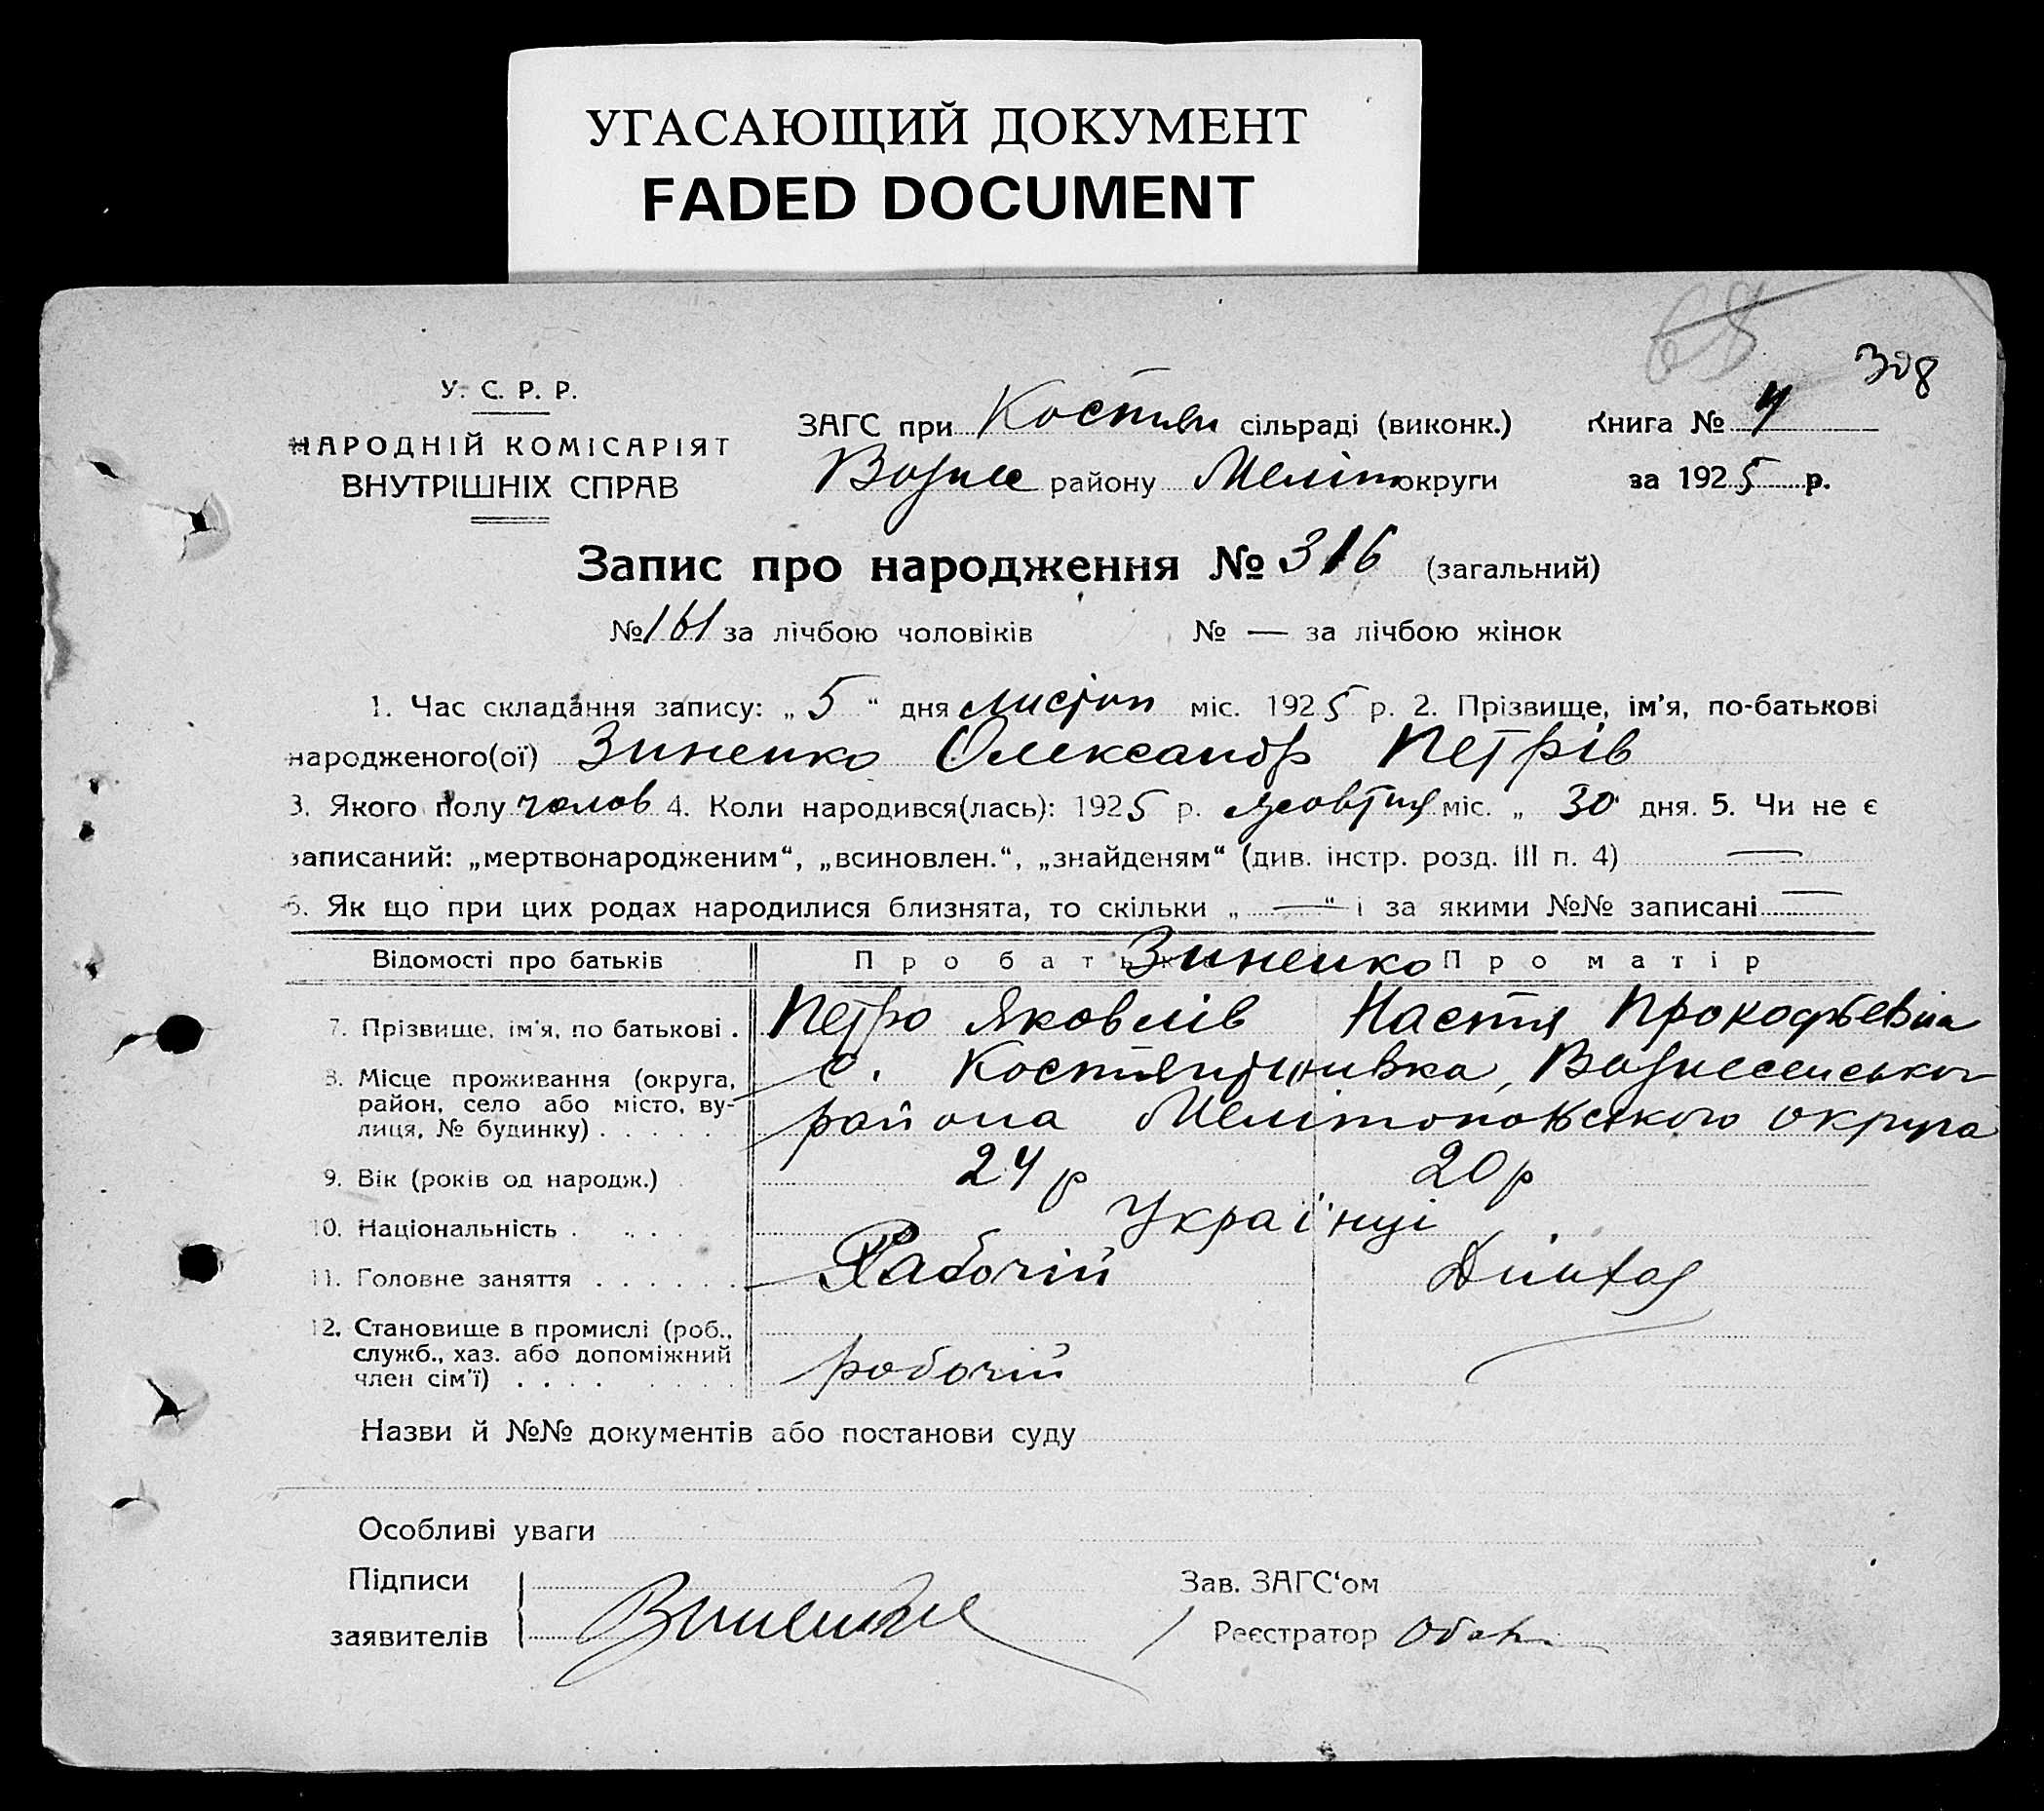 УГАСАЮЩИЙ ДОКУМЕНТ
FADED DOCUMENT
68
308
У. С. Р. Р.
НАРОДНІЙ КОМІСАРІЯТ
ВНУТРІШНІХ СПРАВ
ЗАГС при Костян сільраді (виконк.)
Вознес району Меліт округи
Книга № 4
за 1925 р.
Запис про народження № 316 (загальний)
№ 161 за лічбою чоловіків № — за лічбою жінок
1. Час складання запису: „ 5 “ дня листоп міс. 1925 р. 2. Прізвище, ім'я, по-батькові
народженого(ої) Зиненко Олександр Петрів
3. Якого полу чолов 4. Коли народився(лась): 1925 р. жовтня міс. „ 30 дня. 5. Чи не є
записаний: „мертвонародженим“, „всиновлен.“, „знайденям“ (див. інстр. розд. III п. 4) —
6. Як що при цих родах народилися близнята, то скільки „ — “ і за якими №№ записані —
Відомості про батьків Про батька Зиненко Про матір
7. Прізвище, ім'я, по батькові . Петро Яковлів Настя Прокофьевна
8. Місце проживання (округа, район, село або місто, вулиця, № будинку) . . . . .
с. Костянтинивка, Вознесенського
района Мелітопольського округа
9. Вік (років од народж.) 24 р 20 р
10. Національність . . . . Українці
11. Головне заняття . . . . . . Рабочій
12. Становище в промислі (роб., служб., хаз. або допоміжний член сім'ї) . . . . робочій
Назви й №№ документів або постанови суду
Особливі уваги
Підписи
заявителів Зиненко
Зав. ЗАГС‘ом
Реєстратор